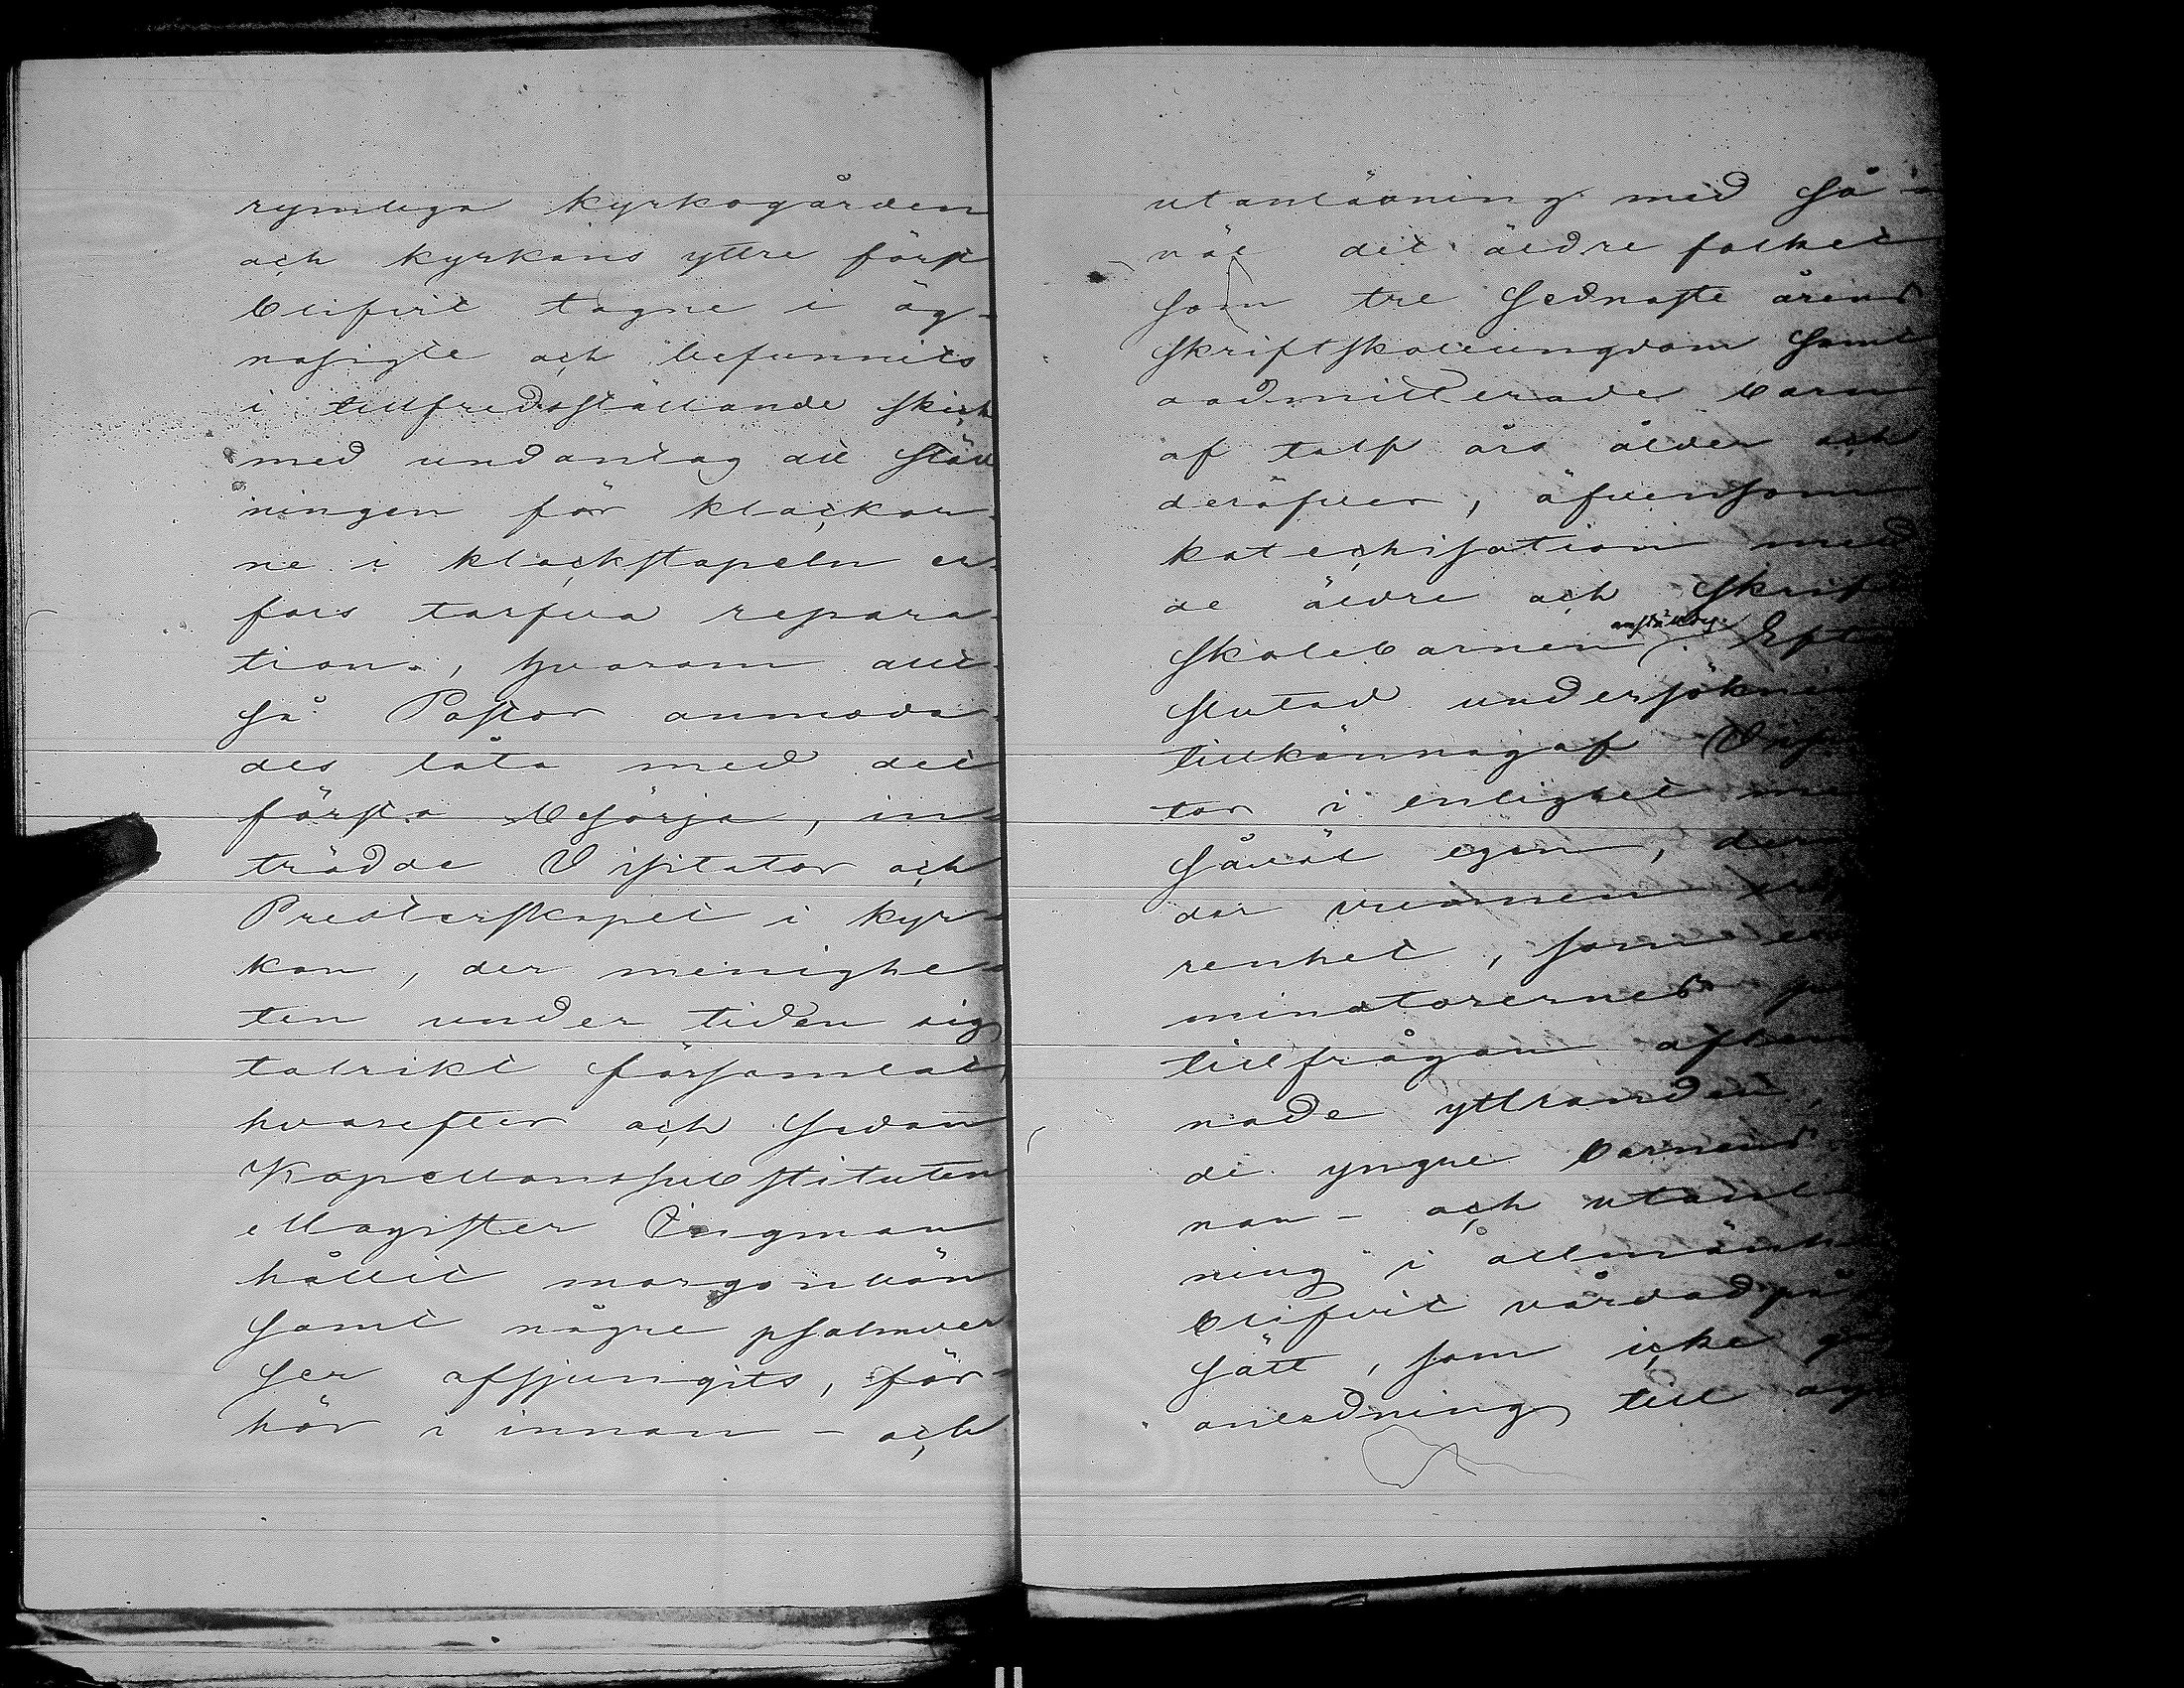 rymliga kyrkogården
och kyrkans yttre först
blifvit tagne i ög-
nasigte och befunnits
i tillfredsställande skick
med undantag att ställ
ningen för klockor-
ne i klockstapeln er-
fors tarfva repara-
tion, hvarom allt-
så Pastor anmoda-
des låta med det
första besörja, in-
trädde Visitator och
Presterskapet i kyr-
kan, der menighe-
ten under tiden sig
talrikt församlat,
hvarefter och sedan
Kapellanssubstituten
Magister Ingman
hållit morgonbön
samt några psalmver
ser afsjungits, för-
hör i innan- och
utanläsning med så-
väl det äldre folket
som tre sednaste årens
skriftskoleungdom samt
oadmitterade barn
af tolf års ålder och
deröfver, äfvensom
katechisation med
de äldre och skrift
skolebarnen anställdes. Efter
slutad undersökning
tillkännagaf
tor i enlighet med
såväl egen,
der vunnen
renhet, som
minatorernes
tillfrågan
nade yttranden,
de yngre barnens
nan- och utanl
ning i allmänh
blifvit vårdad på
sätt, som icke
anledning till